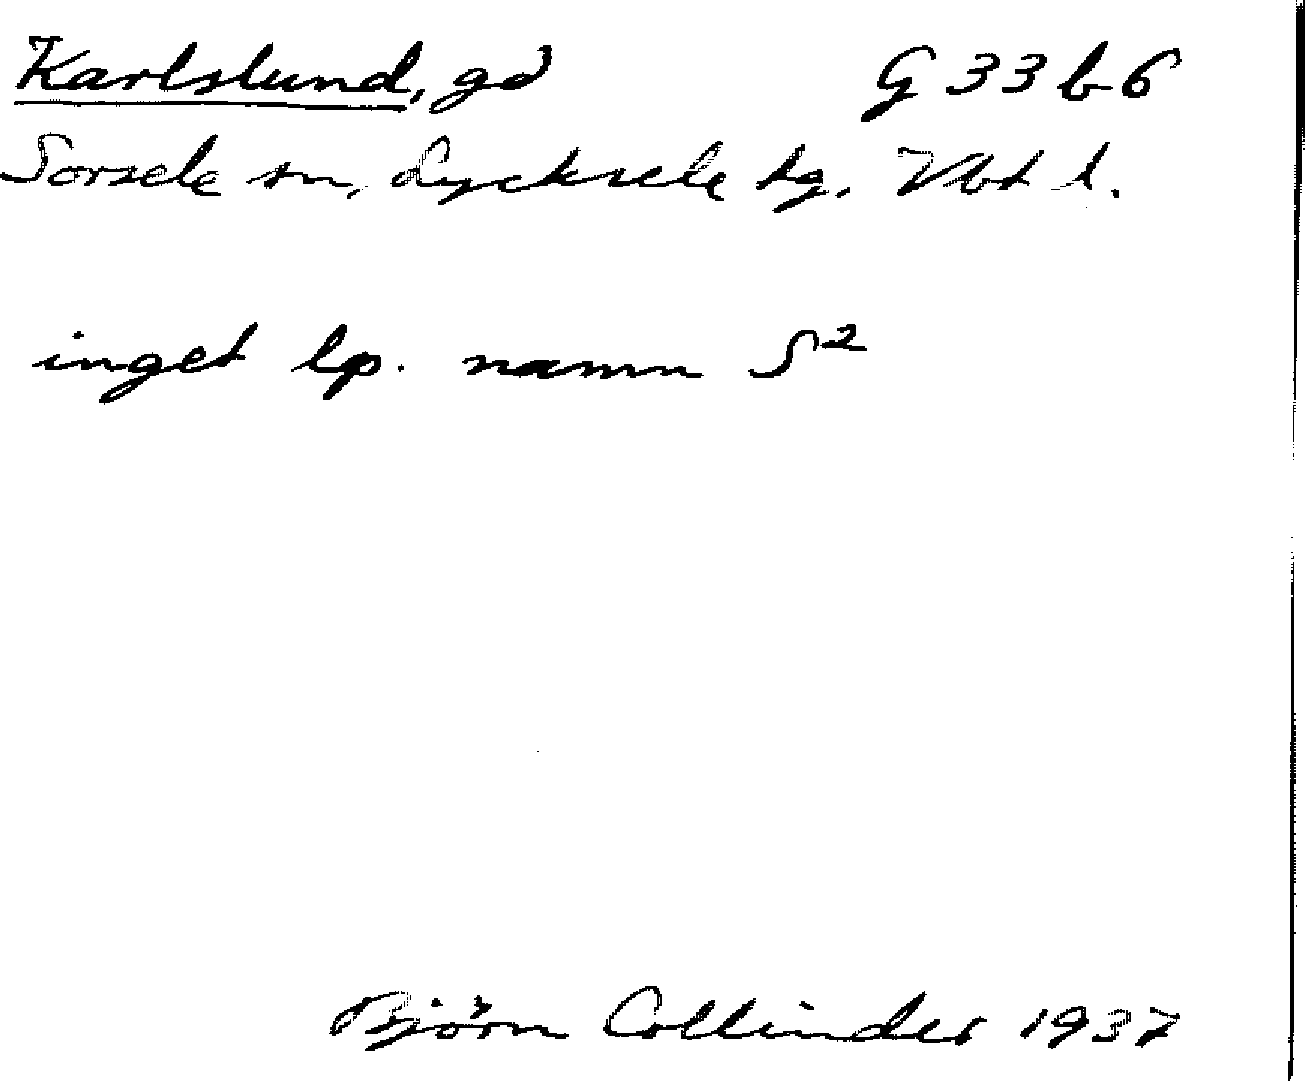 Karlslund, gd G 33 b 6
Sorsele sn, Lycksele tg. Vbt l.
inget lp. namn S²
Björn Collinder 1937